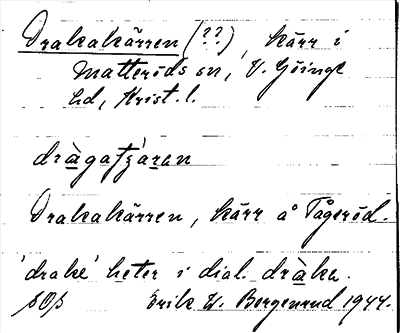 Drakakärren (??), kärr i
Matteröds sn, V. Göinge
hd, Krist. l.
dràgatʃàren
Drakakärren, kärr å Tågeröd.
'drake' heter i dial. dràka.
Erik W. Bergenrud 1944.